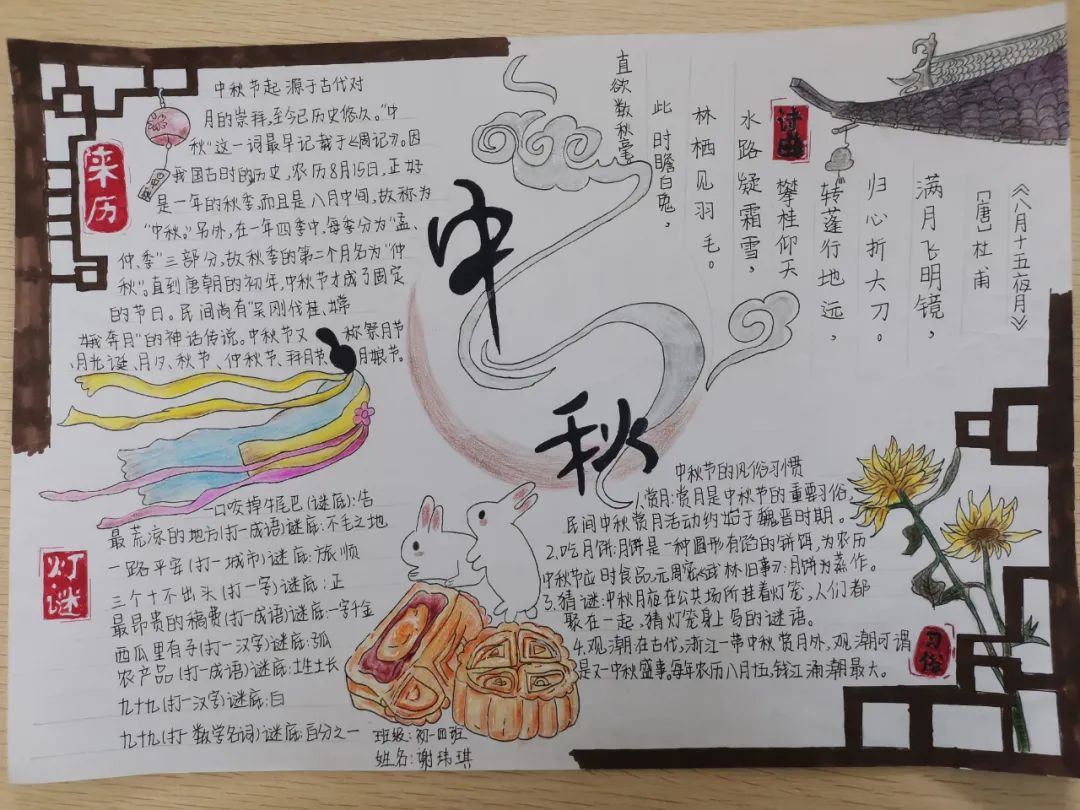 来历
中秋节起源于古代对
月的崇拜,至今已历史悠久。"中
秋"这一词最早记载于《周记》。因
我国古时的历史,农历8月15日,正好
是一年的秋季,而且是八月中间,故称为
"中秋。"另外,在一年四季中,每季分为"孟、
仲、季"三部分,故秋季的第二个月名为"仲
秋"。直到唐朝的初年,中秋节才成了固定
的节日。民间尚有"吴刚伐桂、嫦
娥奔月"的神话传说。中秋节又称祭月节
、月光诞、月夕、秋节、仲秋节、拜月节、月娘节。
中秋
诗曲
《八月十五夜月》
[唐]杜甫
满月飞明镜,
归心折大刀。
转蓬行地远,
攀桂仰天
水路疑霜雪,
林栖见羽毛。
此时瞻白兔,
直欲数秋毫
灯谜
一口咬掉牛尾巴(谜底):告
最荒凉的地方(打一成语)谜底:不毛之地
一路平安(打一城市)谜底:旅顺
三个十不出头(打一字)谜底:正
最昂贵的稿费(打一成语)谜底:一字千金
西瓜里有子(打一汉字)谜底:孤
农产品(打一成语)谜底:土生土长
九十九(打一汉字)谜底:白
九十九(打一数学名词)谜底:百分之一
班级:初一四班
姓名:谢玮琪
习俗
中秋节的风俗习惯
1.赏月:赏月是中秋节的重要习俗,
民间中秋赏月活动约始于魏晋时期。
2.吃月饼:月饼是一种圆形有馅的饼饵,为农历
中秋节应时食品,元周密《武林旧事》:月饼为蒸作。
3.猜谜:中秋月夜在公共场所挂着灯笼,人们都
聚在一起,猜灯笼身上写的谜语。
4.观潮在古代,浙江一带中秋赏月外,观潮可谓
是又一中秋盛事。每年农历八月十五,钱江涌潮最大。